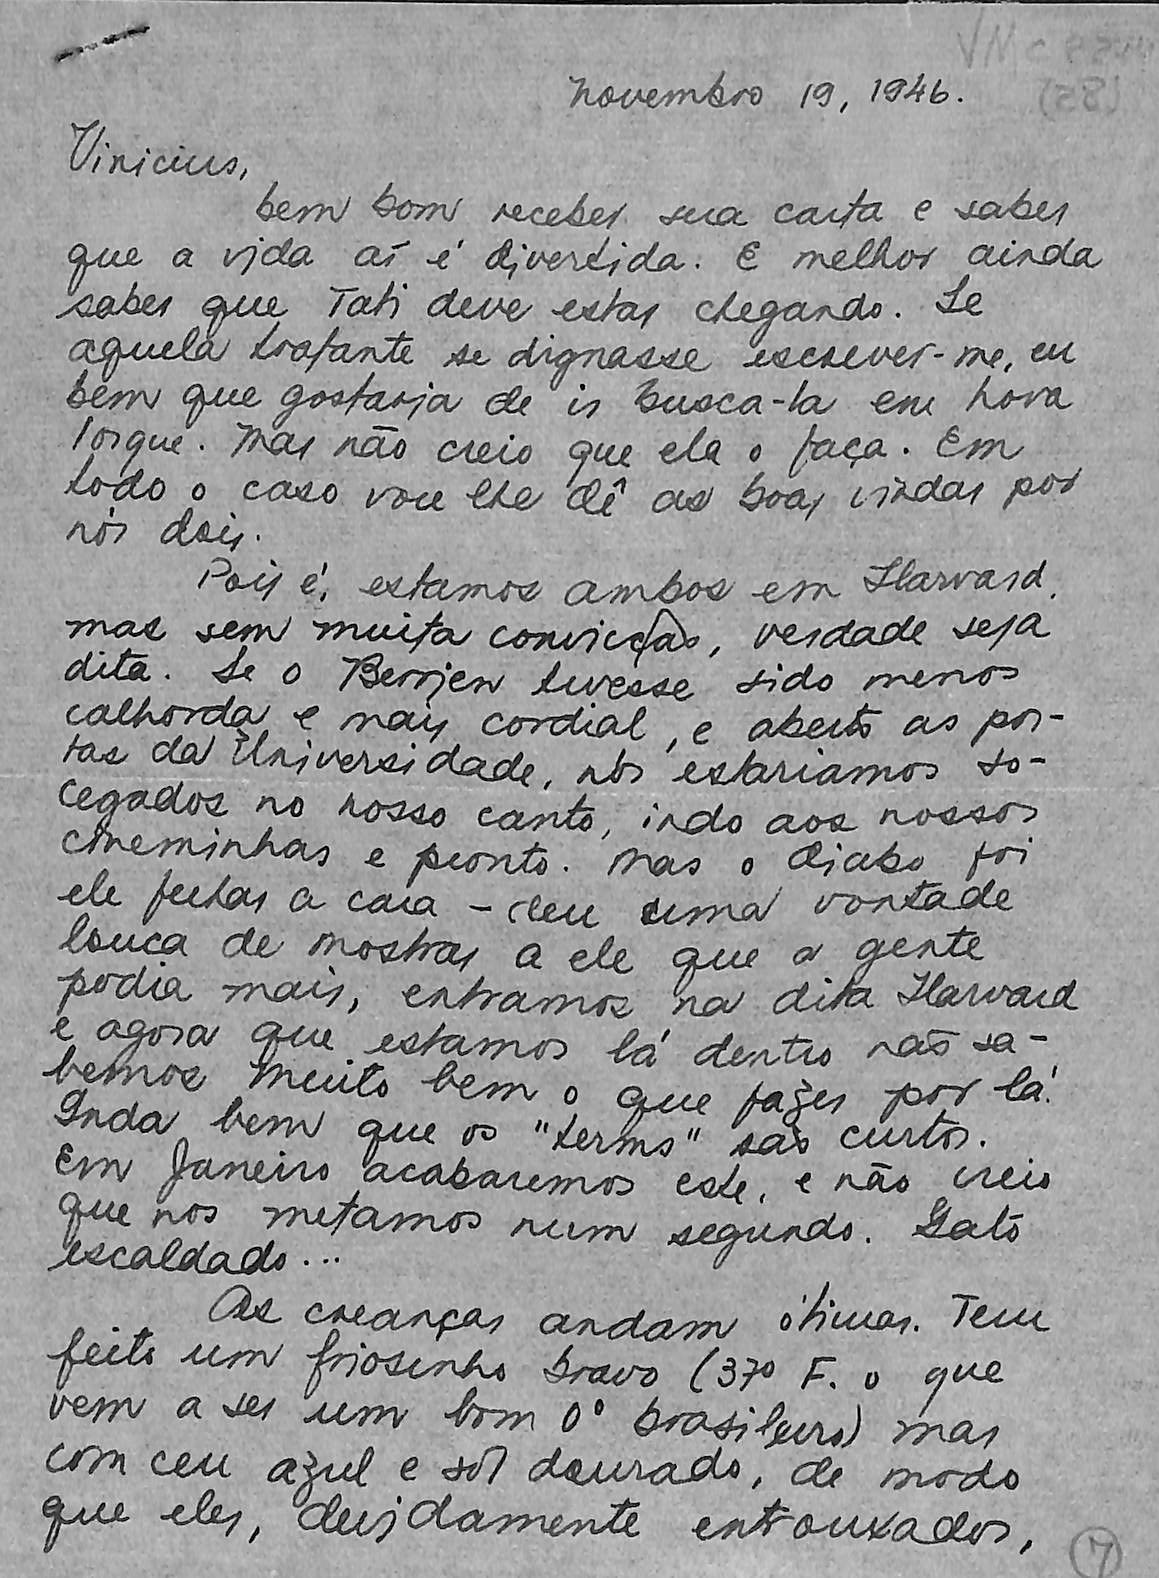 Novembro 19, 1946.
Vinicius,
bem bom receber sua carta e saber
que a vida aí é divertida. E melhor ainda
saber que Tati deve estar chegando. Se
aquela tratante se dignasse escrever-me, eu
bem que gostaria de ir busca-la em Nova
Iorque. Mas não creio que ela o faça. Em
todo o caso você lhe dê as boas vindas por
nós dois.
Pois é, estamos ambos em Harvard,
mas sem muita convicção, verdade seja
dita. Se o Berrien tivesse sido menos
calhorda e mais cordial, e aberto as por-
tas da Universidade, nós estariamos so-
cegados no nosso canto, indo aos nossos
cineminhas e pronto. Mas o diabo foi
ele fechar a cara – deu uma vontade
louca de mostrar a ele que a gente
podia mais, entramos na dita Harvard
e agora que estamos lá dentro não sa-
bemos muito bem o que fazer por lá.
Inda bem que os "terms" são curtos.
Em Janeiro acabaremos este, e não creio
que nos metamos num segundo. Gato
escaldado...
As creanças andam ótimas. Tem
feito um friosinho bravo (37º F. o que
vem a ser um bom 0º brasileiro) mas
com ceu azul e sol dourado, de modo
que eles, devidamente entrouxados,
7